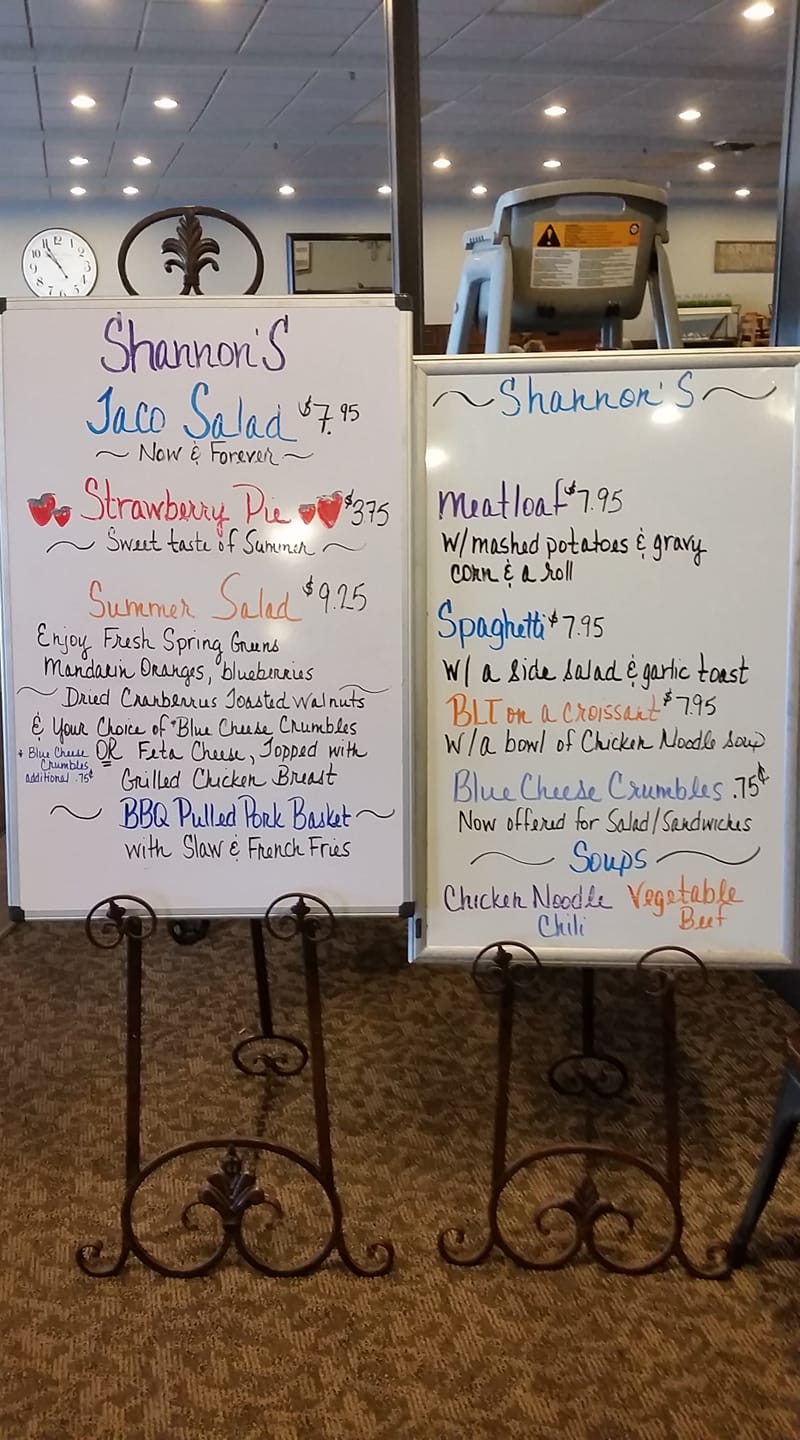 Shannon's
Taco Salad $7.95
~ Now & Forever ~
Strawberry Pie $3.75
~ Sweet taste of Summer ~
Summer Salad $9.25
Enjoy Fresh Spring Greens
Mandarin Oranges, blueberries
~ Dried Cranberries Toasted Walnuts ~
& Your Choice of *Blue Cheese Crumbles
OR Feta Cheese, Topped with
* Blue Cheese
Crumbles
additional .75¢
Grilled Chicken Breast
~ BBQ Pulled Pork Basket ~
with Slaw & French Fries
~ Shannon's ~
Meatloaf $7.95
W/ mashed potatoes & gravy
corn & a roll
Spaghetti $7.95
W/ a side salad & garlic toast
BLT on a croissant $7.95
W/ a bowl of Chicken Noodle Soup
Blue Cheese Crumbles .75¢
Now offered for Salad/Sandwiches
~ Soups ~
Chicken Noodle
Chili
Vegetable
Beef